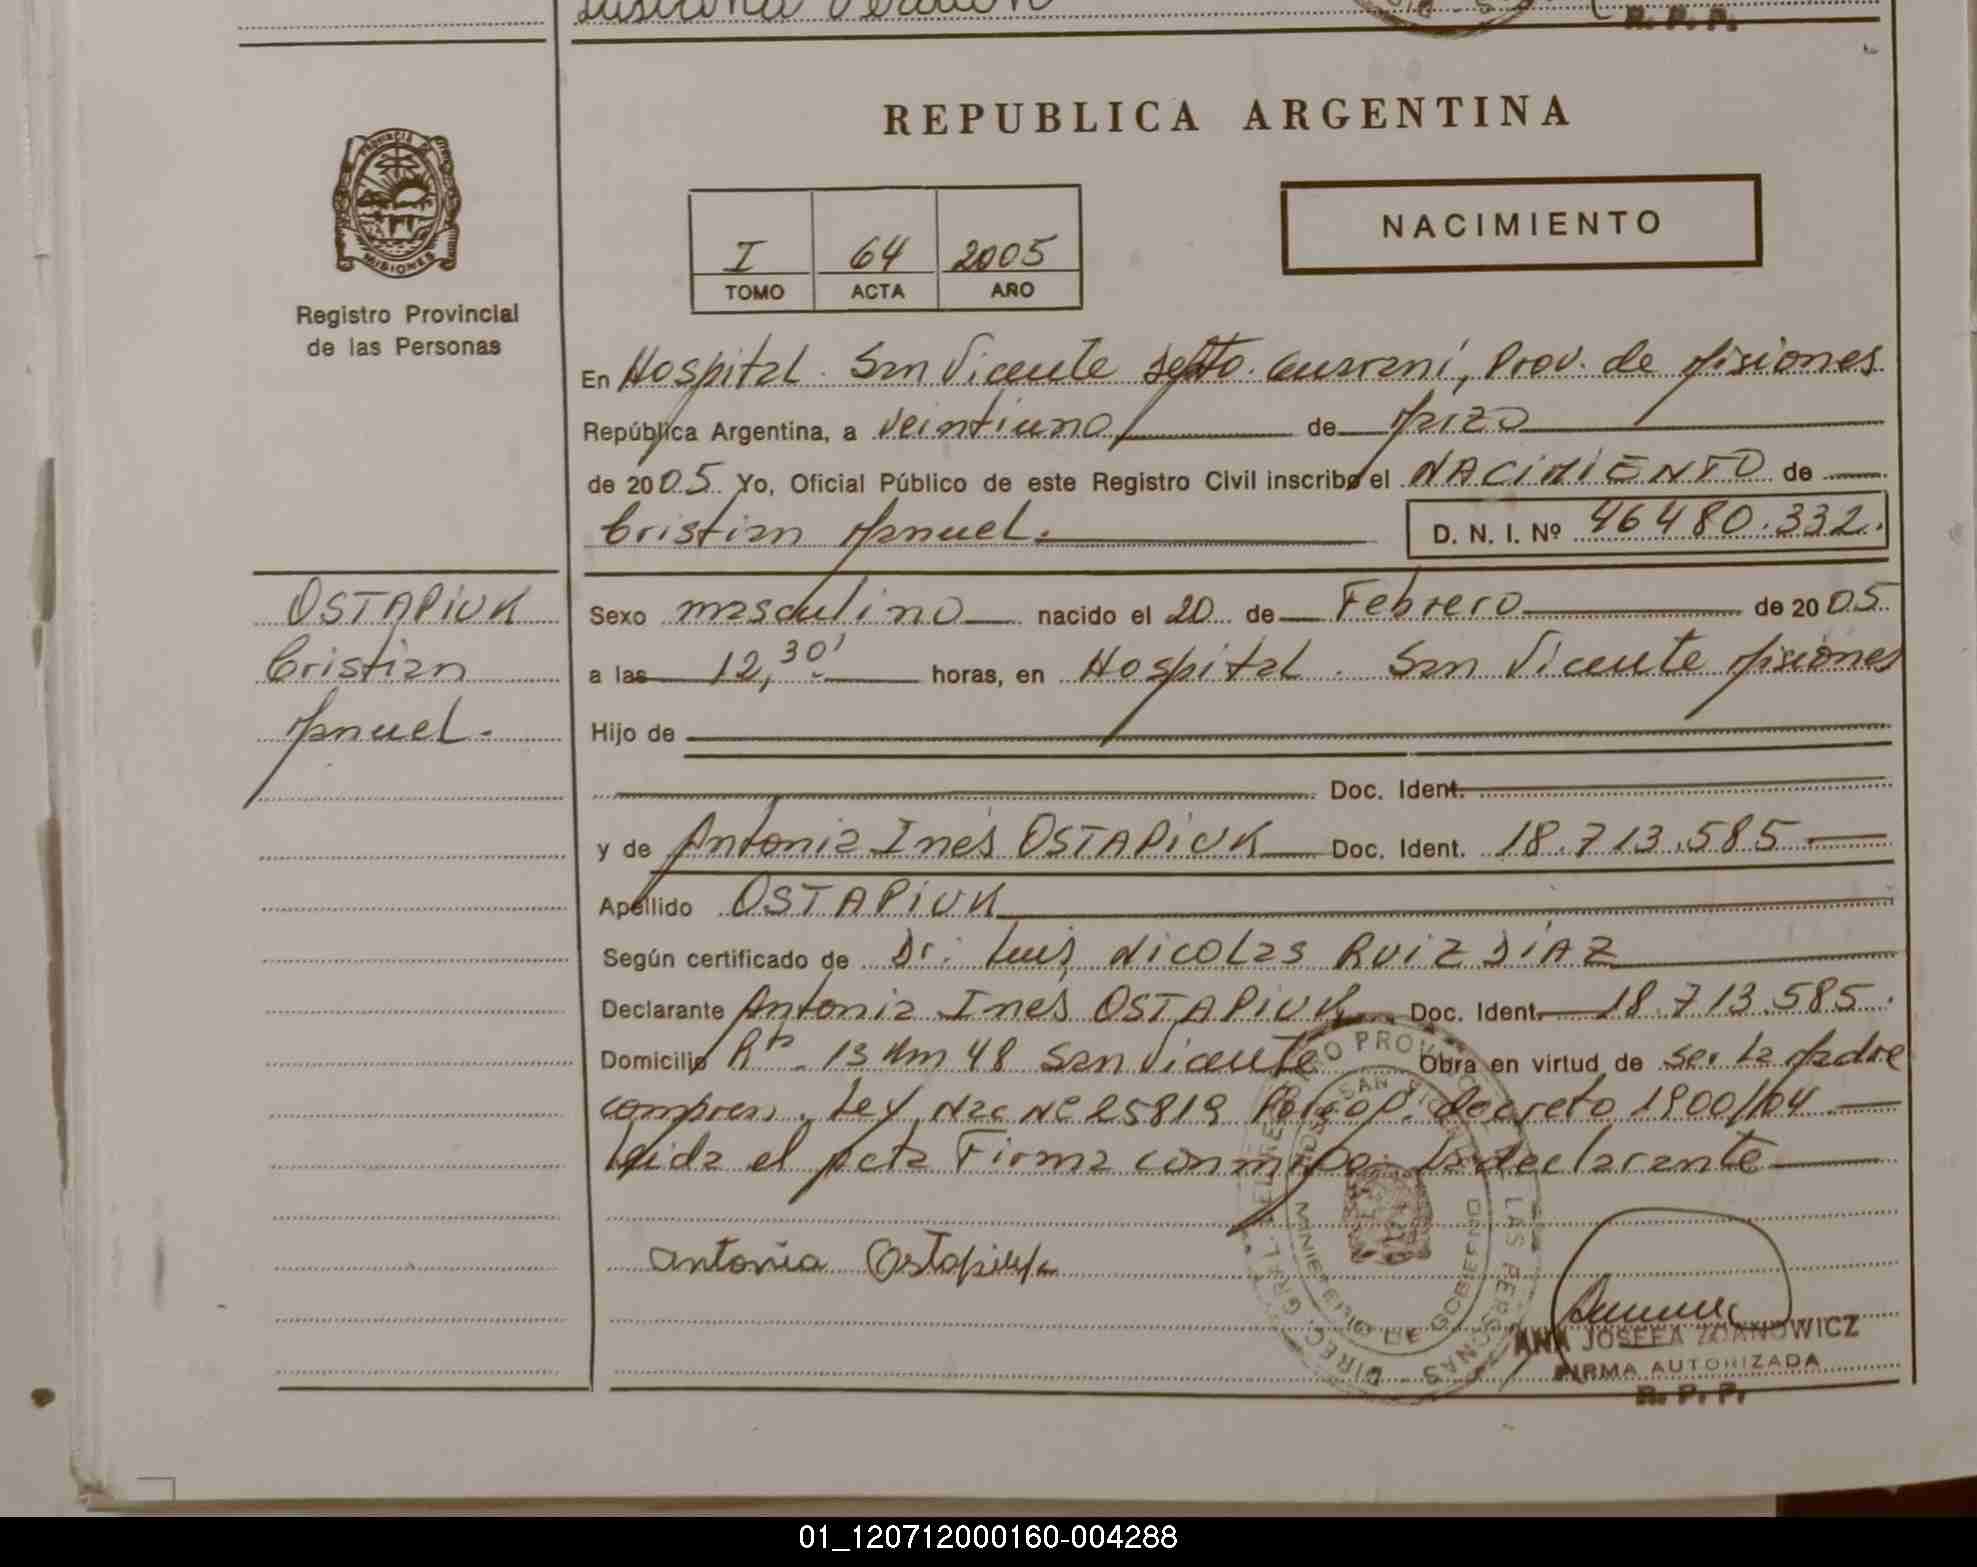 R. P. P.
REPUBLICA ARGENTINA
NACIMIENTO
I 64 2005
TOMO ACTA AÑO
PROVINCIA DE MISIONES
Registro Provincial
de las Personas
En Hospital San Vicente Depto. Guarani, Prov. de Misiones
República Argentina, a veintiuno de Marzo
de 2005 Yo, Oficial Público de este Registro Civil inscribo el NACIMIENTO de
Cristian Manuel. D. N. I. Nº 46480.332.
OSTAPIUK
Cristian
Manuel.
Sexo masculino nacido el 20 de Febrero de 2005
a las 12,30' horas, en Hospital San Vicente Misiones
Hijo de
Doc. Ident.
y de Antonia Inés OSTAPIUK Doc. Ident. 18.713.585
Apellido OSTAPIUK
Según certificado de Dr. Luis Nicolas RUIZ DIAZ
Declarante Antonia Inés OSTAPIUK Doc. Ident. 18.713.585.
Domicilio Rta. 13 Km 48 San Vicente Obra en virtud de ser la Madre
Ley Nac Nº 25819 decreto 1900/04
Leida el acta Firma conmigo la declarante
Antonia Ostapiuk
ANA JOSEFA ZDANOWICZ
FIRMA AUTORIZADA
R. P. P.
MINISTERIO DE GOBIERNO
01_120712000160-004288